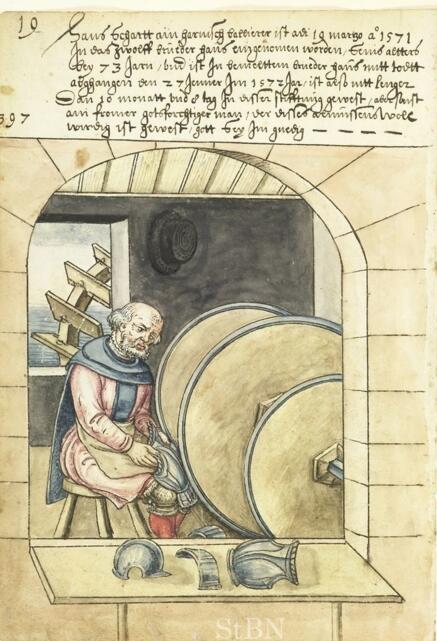 19
Hans Segartt ain harnisch ballierer ist adi 19 margo aº 1571
In das zwolff brueder haus eingenomen worden, seins alters
bey 73 Jarn, und ist In bemeltten brueder haus mitt todtt
abgangen den 27 Jenner Im 1572 Jar, ist also nitt lenger
Dan 10 monatt und 8 tag In disser stifttung gewest, aber sunst
397
ain fromer gotsforchtiger man, der disses almussens wolc
wirdig ist gewest, gott sey Im gnedig
StBN